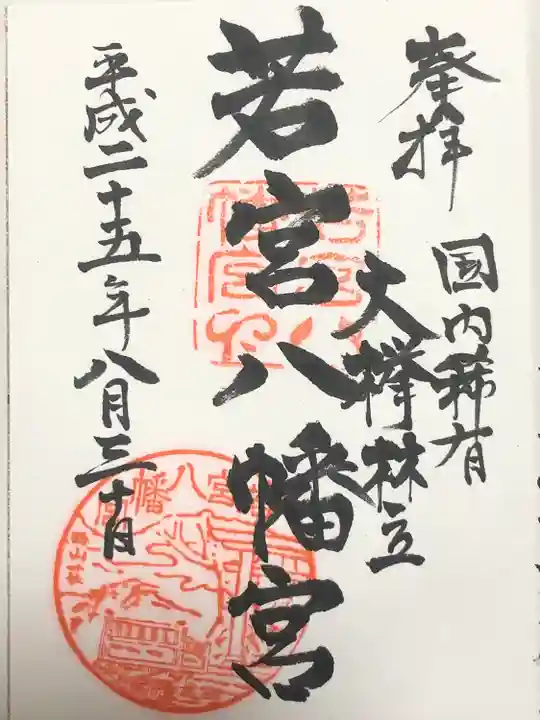 奉拝
国内稀有
大欅林立
若宮八幡宮
平成二十五年八月三十日
若宮八幡宮